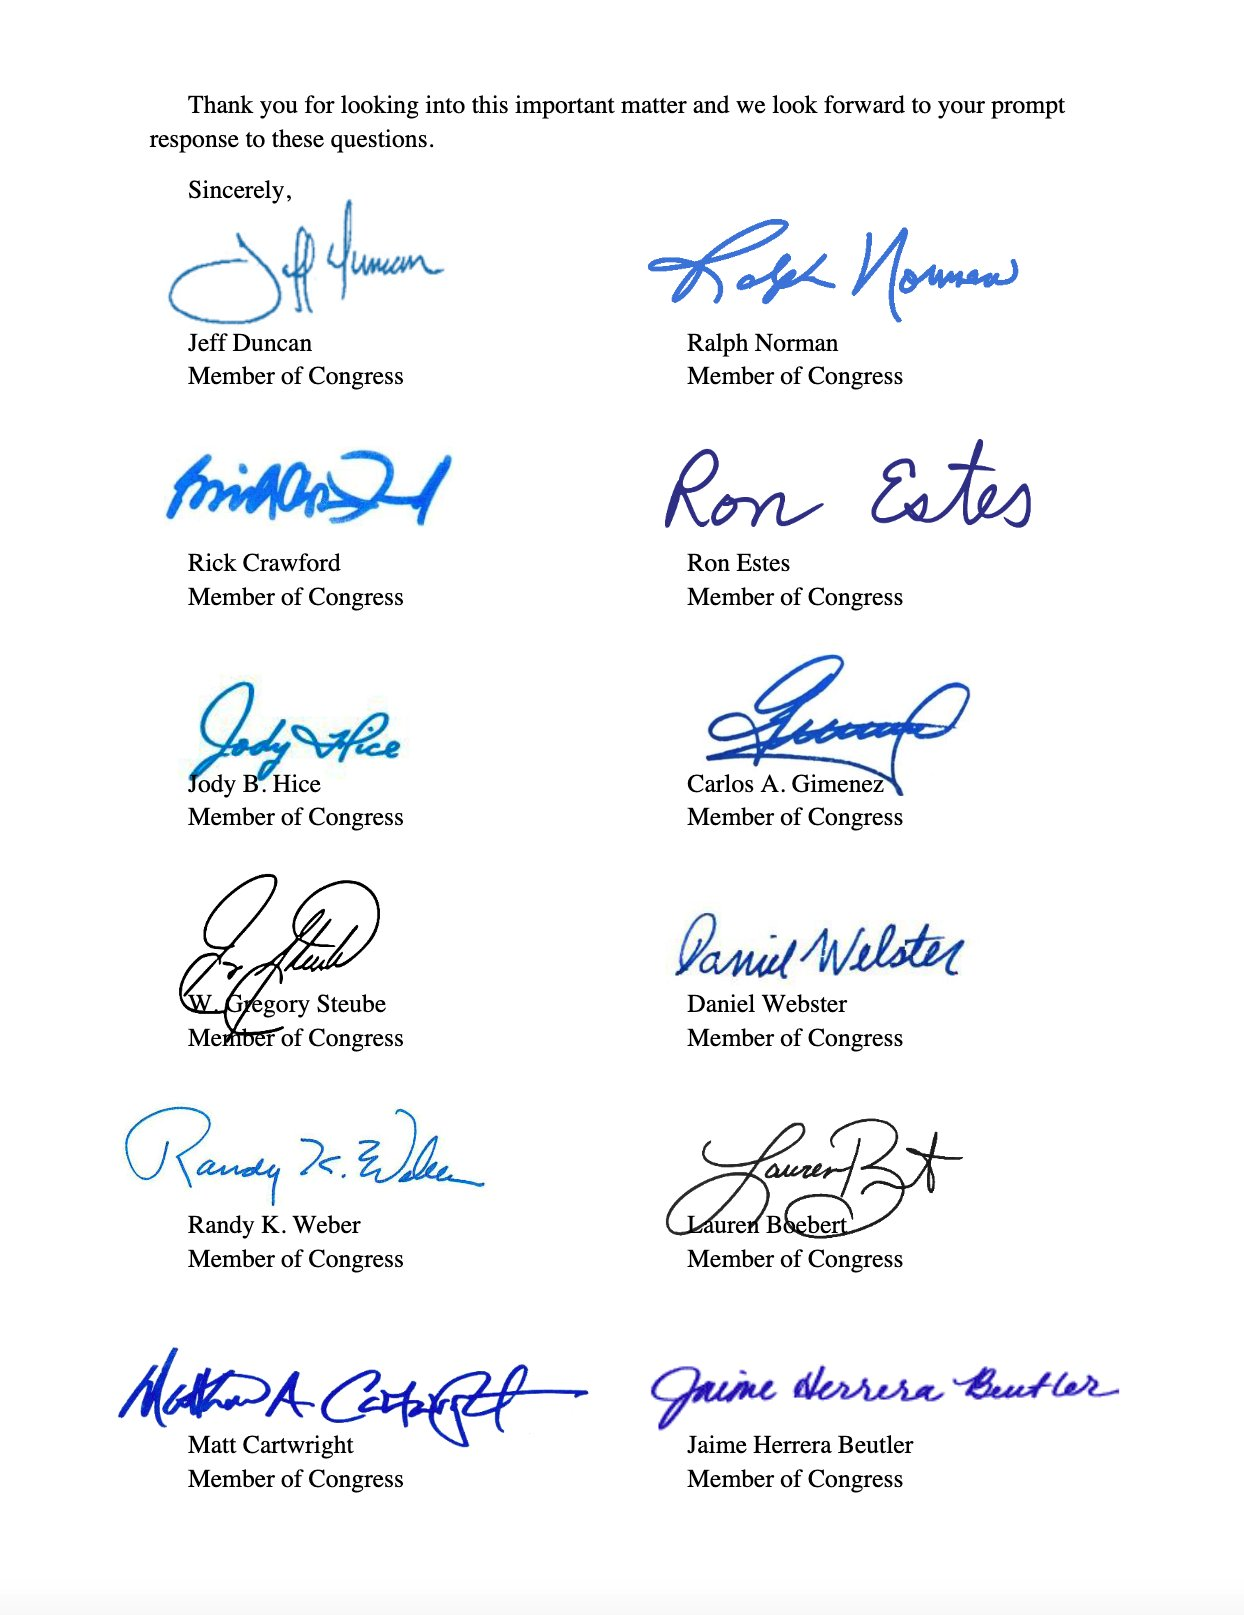 Thank you for looking into this important matter and we look forward to your prompt
response to these questions.
Sincerely,
Jeff Duncan
Ralph Norman
Jeff Duncan
Member of Congress
Ralph Norman
Member of Congress
Ron Estes
Rick Crawford
Member of Congress
Ron Estes
Member of Congress
Jody Hice
Jody B. Hice
Member of Congress
Carlos A. Gimenez
Member of Congress
Daniel Webster
W. Gregory Steube
Member of Congress
Daniel Webster
Member of Congress
Randy K. Weber
Randy K. Weber
Member of Congress
Lauren Boebert
Member of Congress
Matthew A Cartwright
Jaime Herrera Beutler
Matt Cartwright
Member of Congress
Jaime Herrera Beutler
Member of Congress